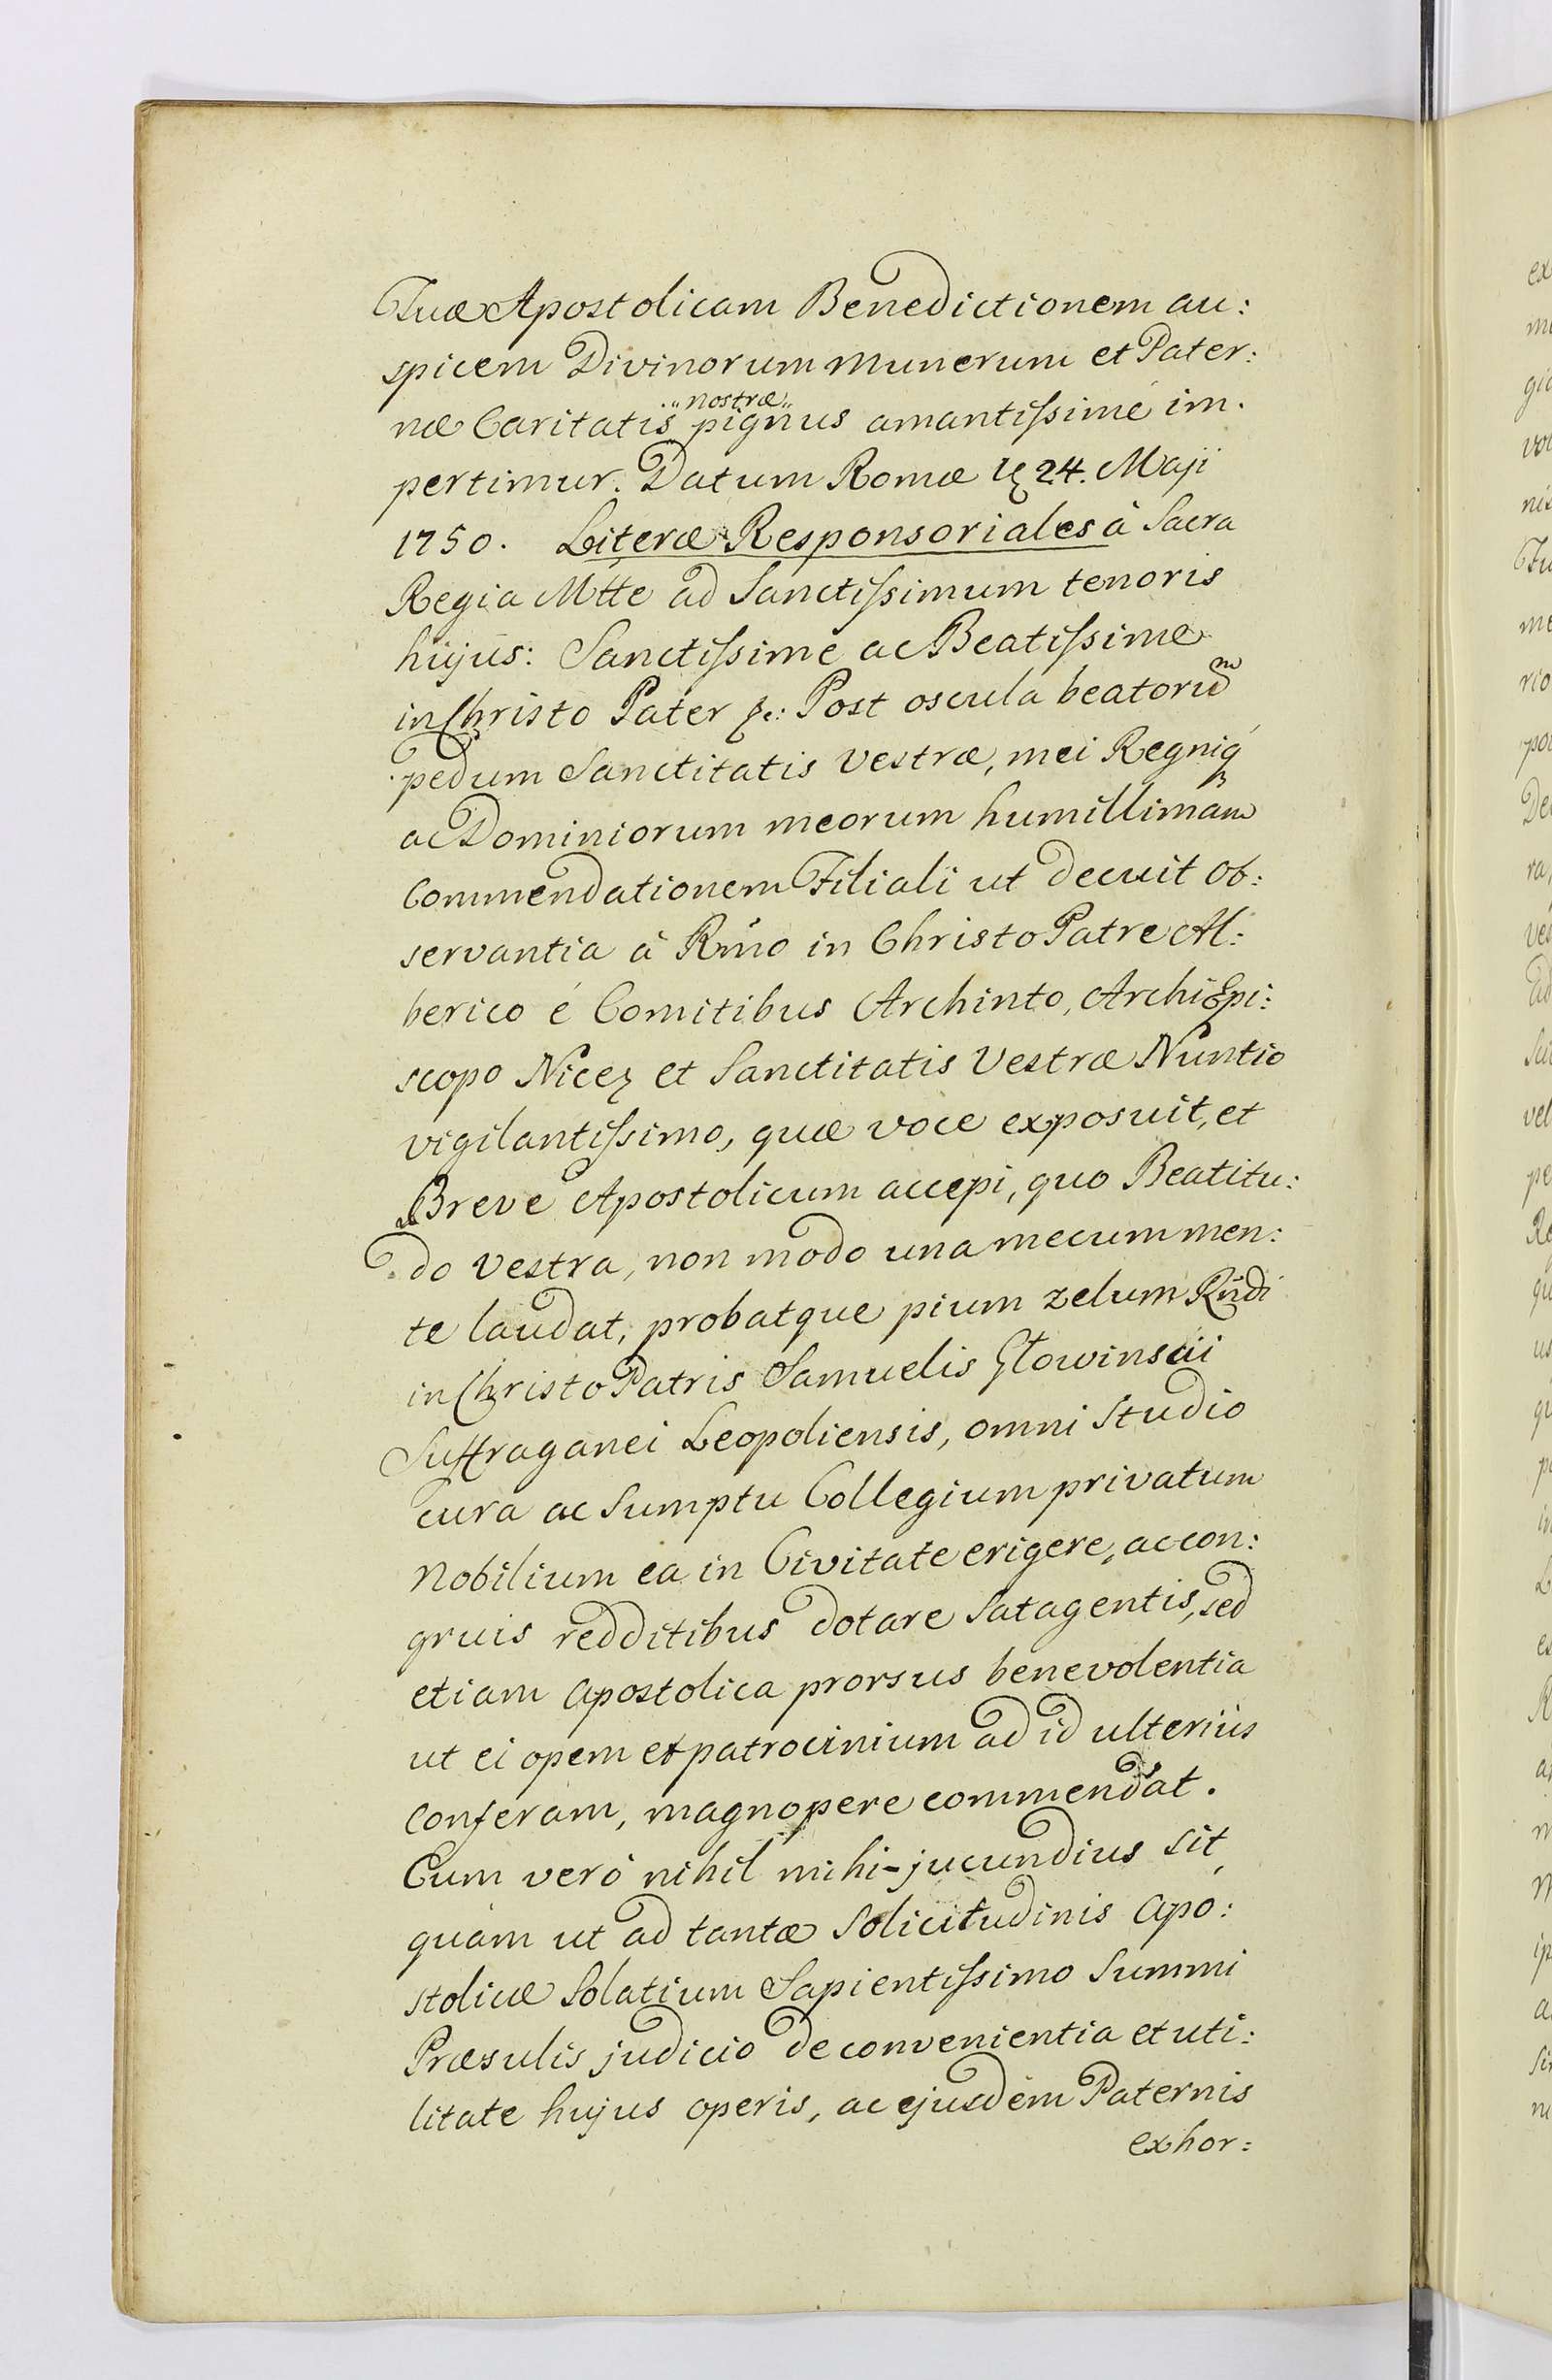 Tuæ Apostolicam Benedictionem au:
spicem Divinorum Munerum et Pater:
næ Caritatis „nostræ„ pignus amantissimé im.
pertimur. Datum Romæ 24. Maji
1750. Literæ Responsoriales à Sacra
Regia Mtte ad Sanctissimum tenoris
hujus: Sanctissime ac Beatissime
in Christo Pater &c: Post oscula beatorum
pedum Sanctitatis Vestræ, mei Regniq
ac Dominiorum meorum humillimam
Commendationem Filiali ut decuit ob:
servantia à Rmo in Christo Patre Al:
berico é Comitibus Archinto, ArchiEpi:
scopo Niceę et Sanctitatis Vestræ Nuntio
vigilantissimo, quæ voce exposuit, et
Breve Apostolicum accepi, quo Beatitu:
do Vestra, non modo una mecum men:
te laudat, probatque pium zelum Rndi
in Christo Patris Samuelis Głowinscii
Suffraganei Leopoliensis, omni Studio
cura ac Sumptu Collegium privatum
Nobilium ea in Civitate erigere, ac con:
gruis redditibus dotare Satagentis, sed
etiam Apostolica prorsus benevolentia
ut ei opem et patrocinium ad id ulteriùs
conferam, magnopere commendat.
Cum veró nihil mihi jucundius sit,
quàm ut ad tantæ Solicitudinis Apo:
stolicæ Solatium Sapientissimo Summi
Præsulis judicio de convenientia et uti:
litate hujus operis, ac ejusdem Paternis
exhor: